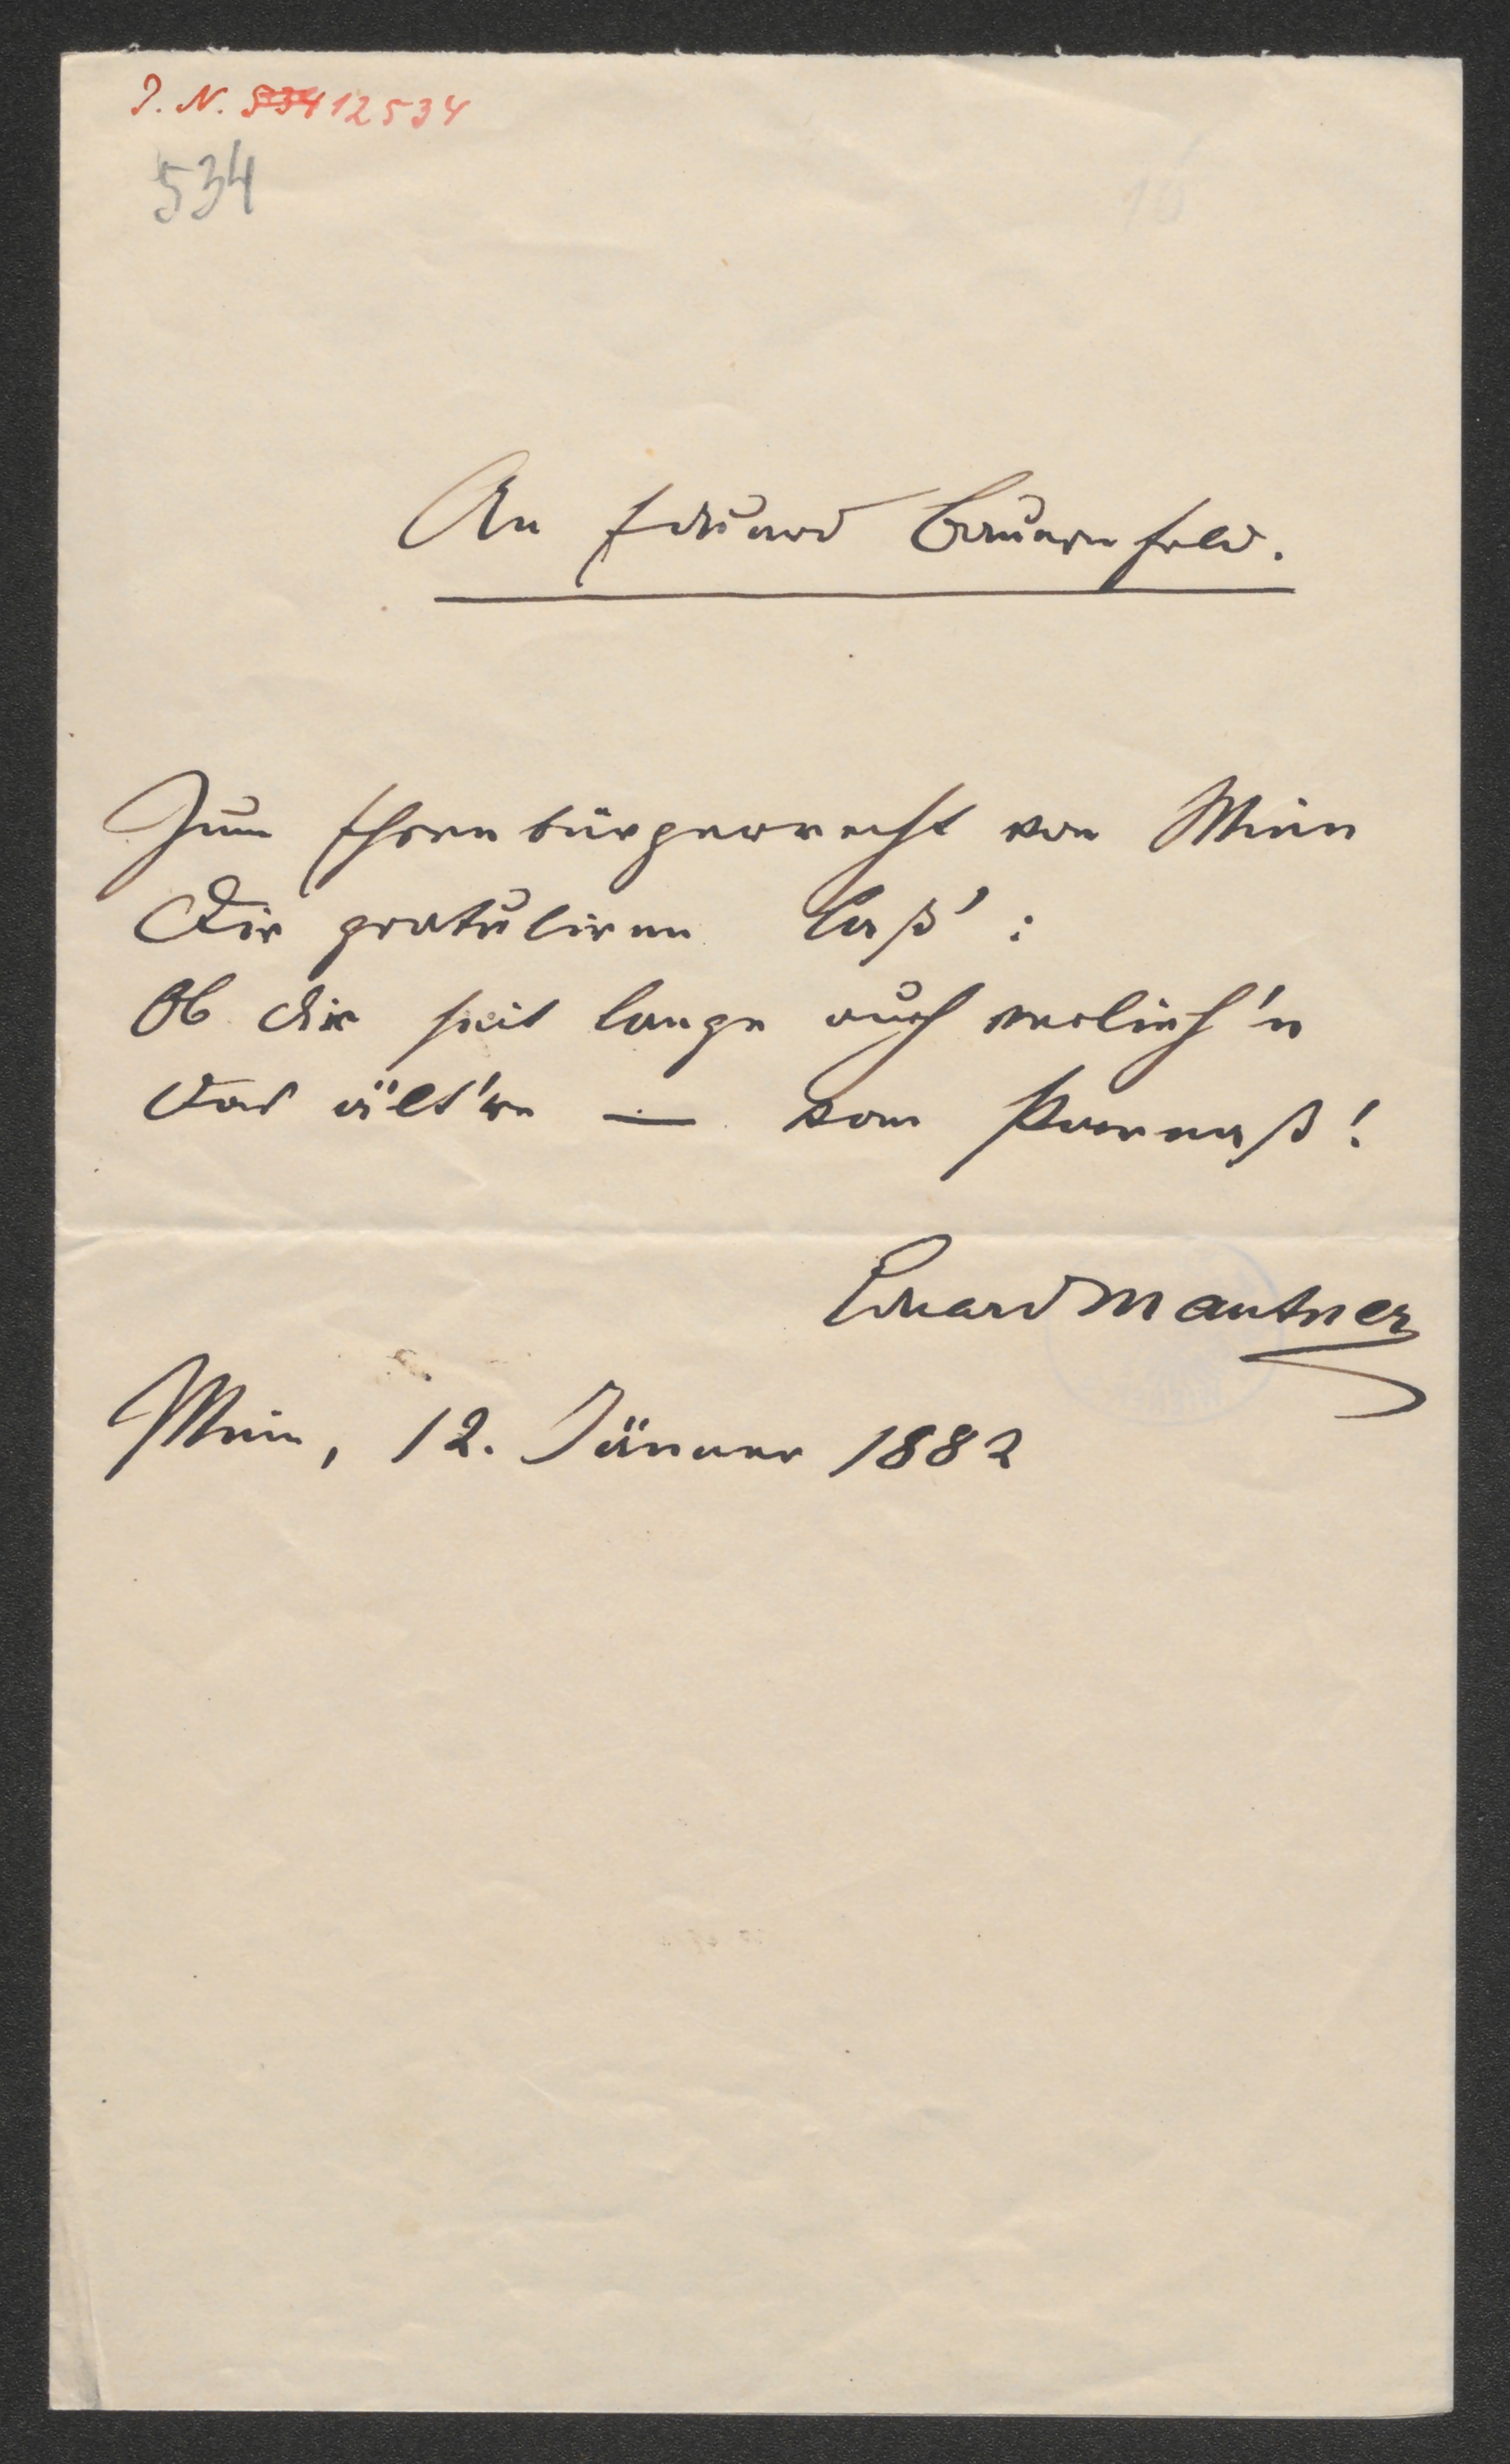 I. N. 534 12534
534
An Eduard Bauernfeld.
Zum Ehrenbürgerrecht von Wien
Dir gratuliren laß':
Ob dir seit lange auch verlieh'n
Das ält're — vom Parnaß!
Eduard Mautner
Wien, 12. Jänner 1882